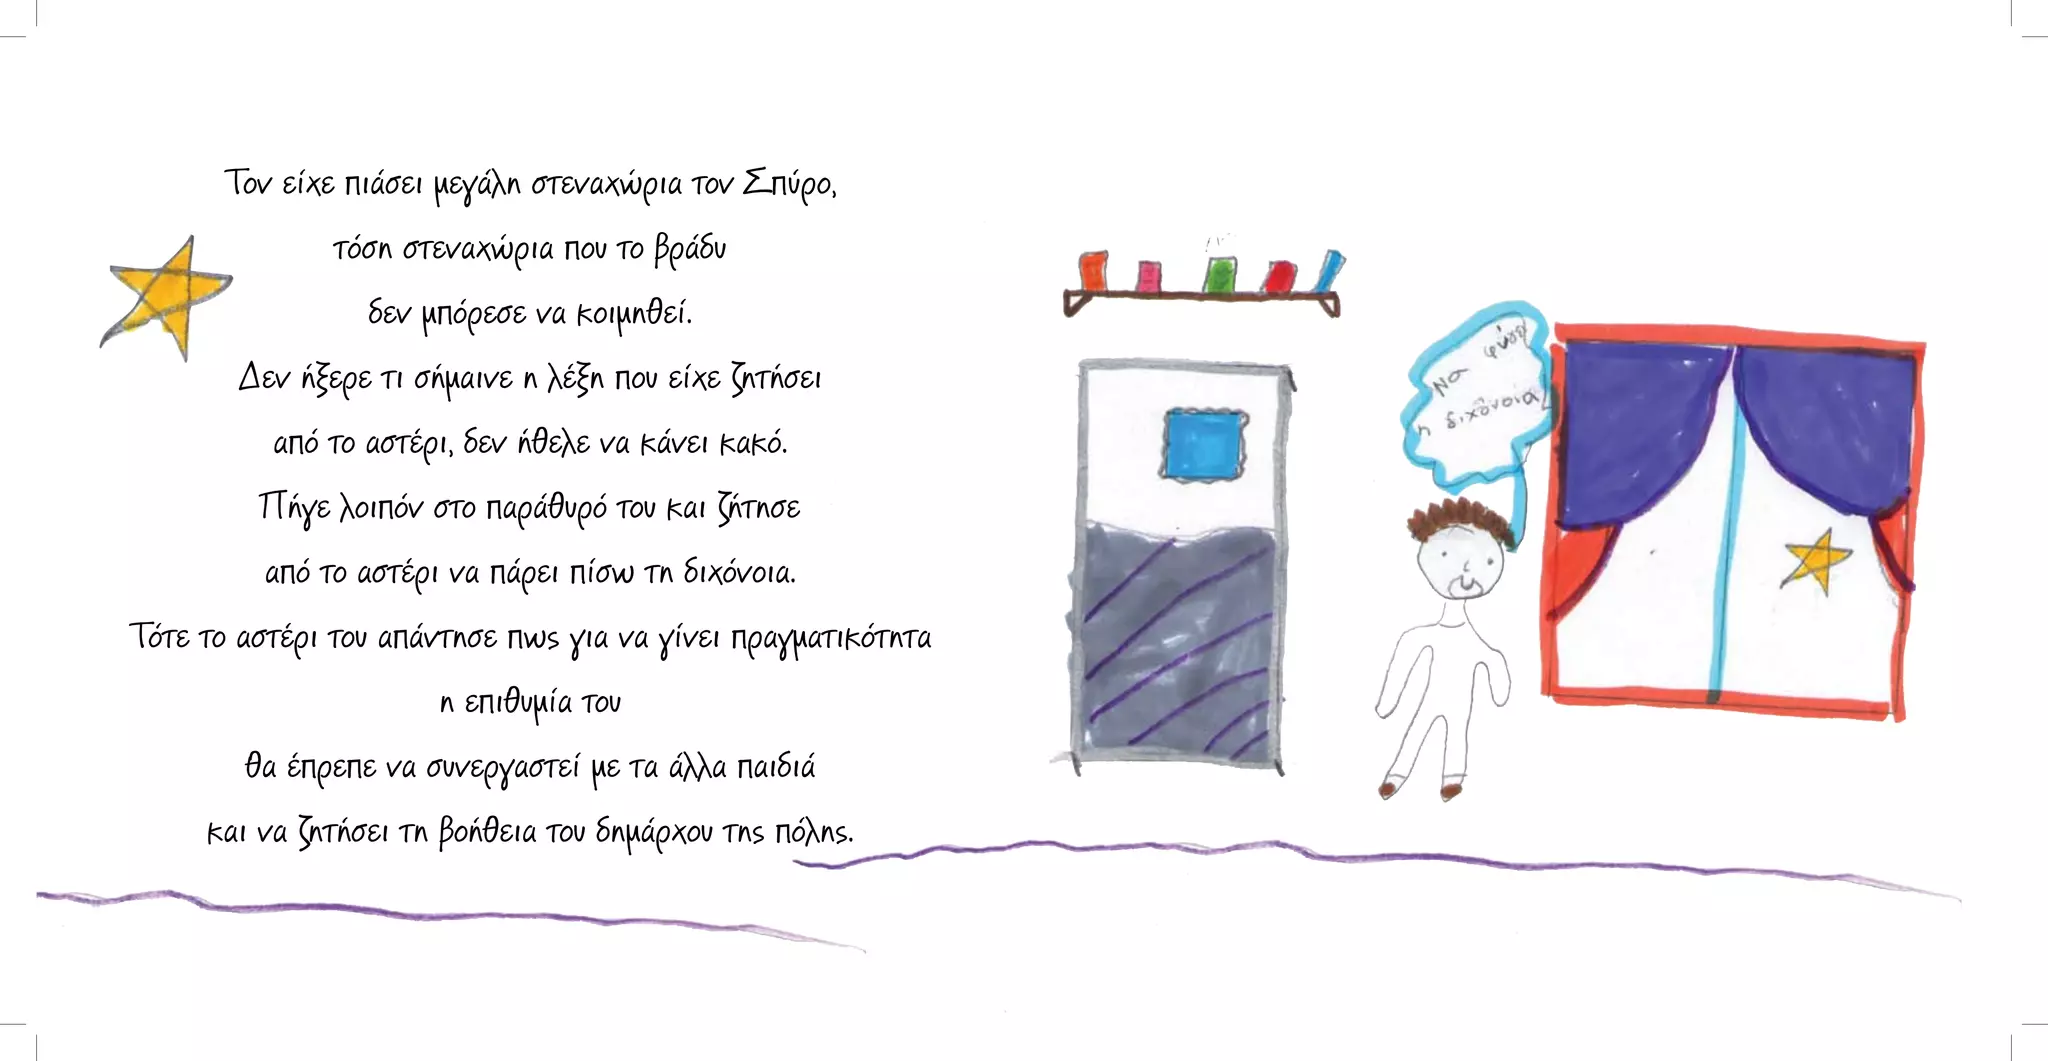 Τον είχε πιάσει μεγάλη στεναχώρια τον Σπύρο,
τόση στεναχώρια που το βράδυ
δεν μπόρεσε να κοιμηθεί.
Δεν ήξερε τι σήμαινε η λέξη που είχε ζητήσει
από το αστέρι, δεν ήθελε να κάνει κακό.
Πήγε λοιπόν στο παράθυρό του και ζήτησε
από το αστέρι να πάρει πίσω τη διχόνοια.
Τότε το αστέρι του απάντησε πως για να γίνει πραγματικότητα
η επιθυμία του
θα έπρεπε να συνεργαστεί με τα άλλα παιδιά
και να ζητήσει τη βοήθεια του δημάρχου της πόλης.
να φύγει
η διχόνοια